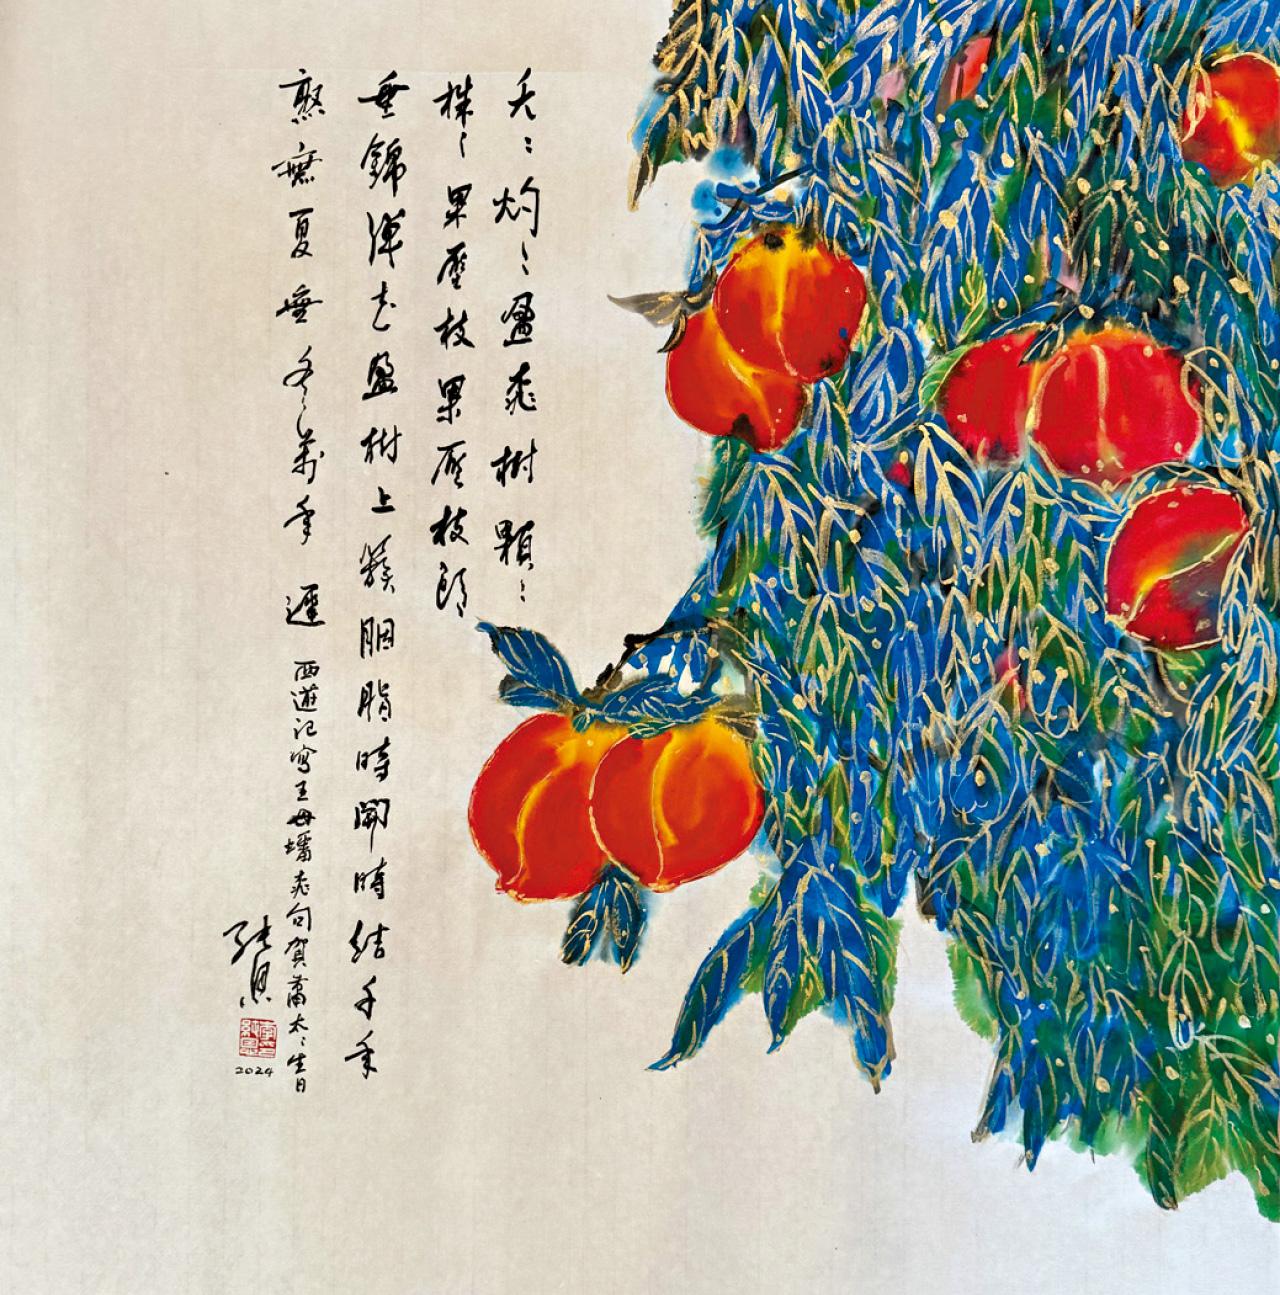 夭〻灼〻盈桃樹顆〻
株〻果壓枝果壓枝頭
垂錦彈花盈樹上簇胭脂時開時結千年
熟無夏無冬〻萬年遲
西遊記寫王母蟠桃句賀蕭太〻生日
2024